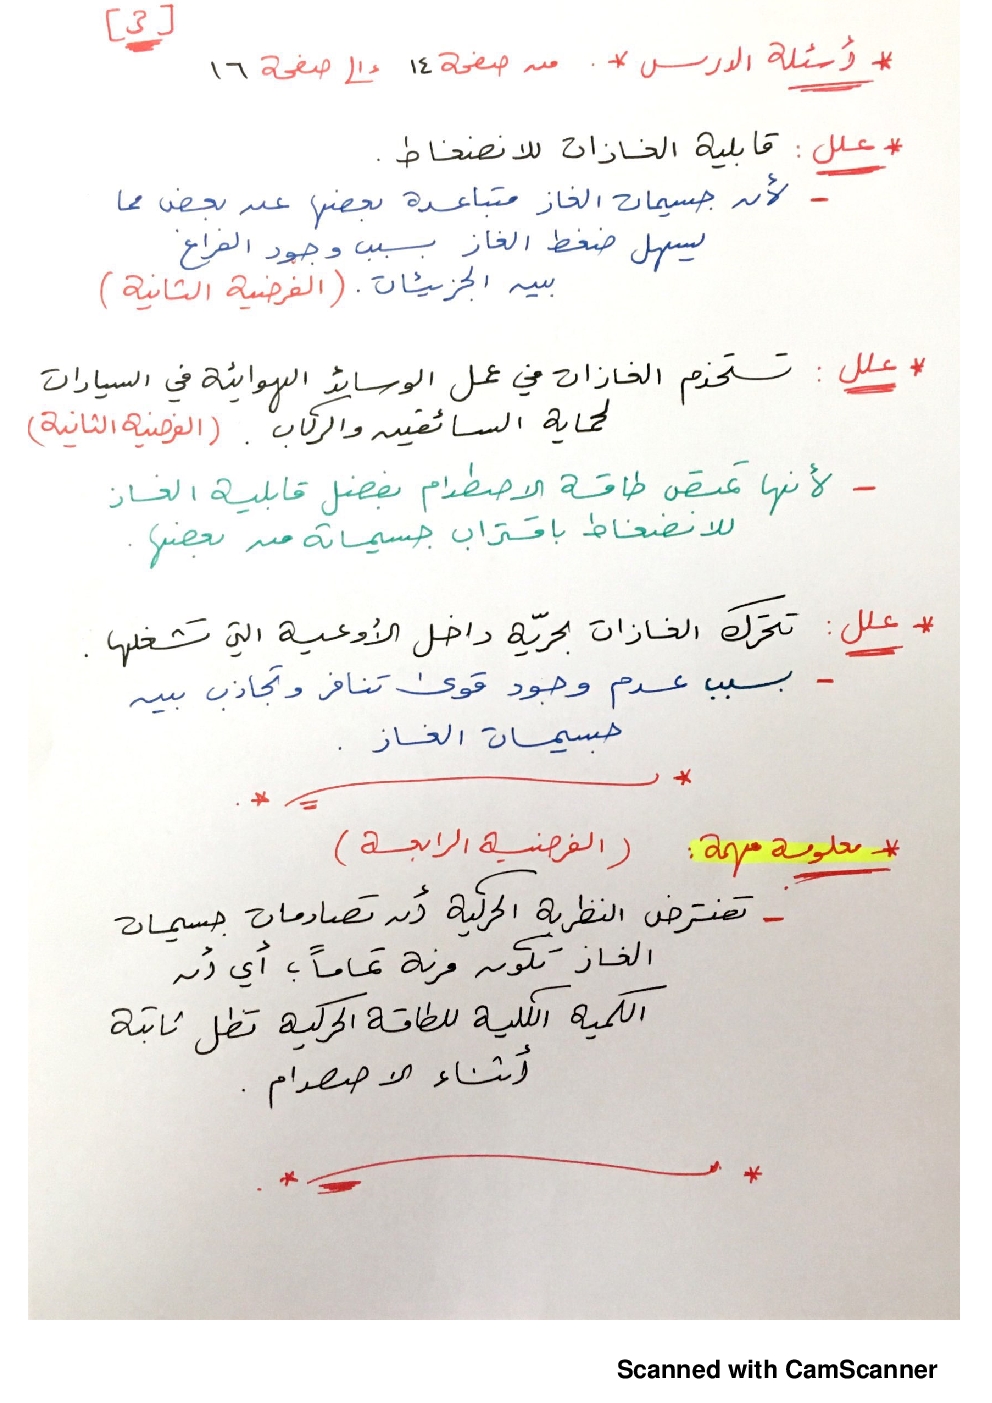 [3]
* أسئلة الدرس * . من صفحة ١٤ إلى صفحة ١٦
* علل : قابلية الغازات للانضغاط .
- لأن جسيمات الغاز متباعدة بعضها عن بعض مما
يسهل ضغط الغاز بسبب وجود الفراغ
بين الجزيئات . (الفرضية الثانية)
* علل : تستخدم الغازات في عمل الوسائد الهوائية في السيارات
لحماية السائقين والركاب . (الفرضية الثانية)
- لأنها تمتص طاقة الاصطدام بفضل قابلية الغاز
للانضغاط باقتراب جسيماته من بعضها .
* علل : تتحرك الغازات بحريّة داخل الأوعية التي تشغلها .
- بسبب عدم وجود قوى تنافر وتجاذب بين
جسيمات الغاز .
* معلومة مهمة : (الفرضية الرابعة)
- تفترض النظرية الحركية أن تصادمات جسيمات
الغاز تكون مرنة تماماً ، أي أن
الكمية الكلية للطاقة الحركية تظل ثابتة
أثناء الاصطدام .
Scanned with CamScanner